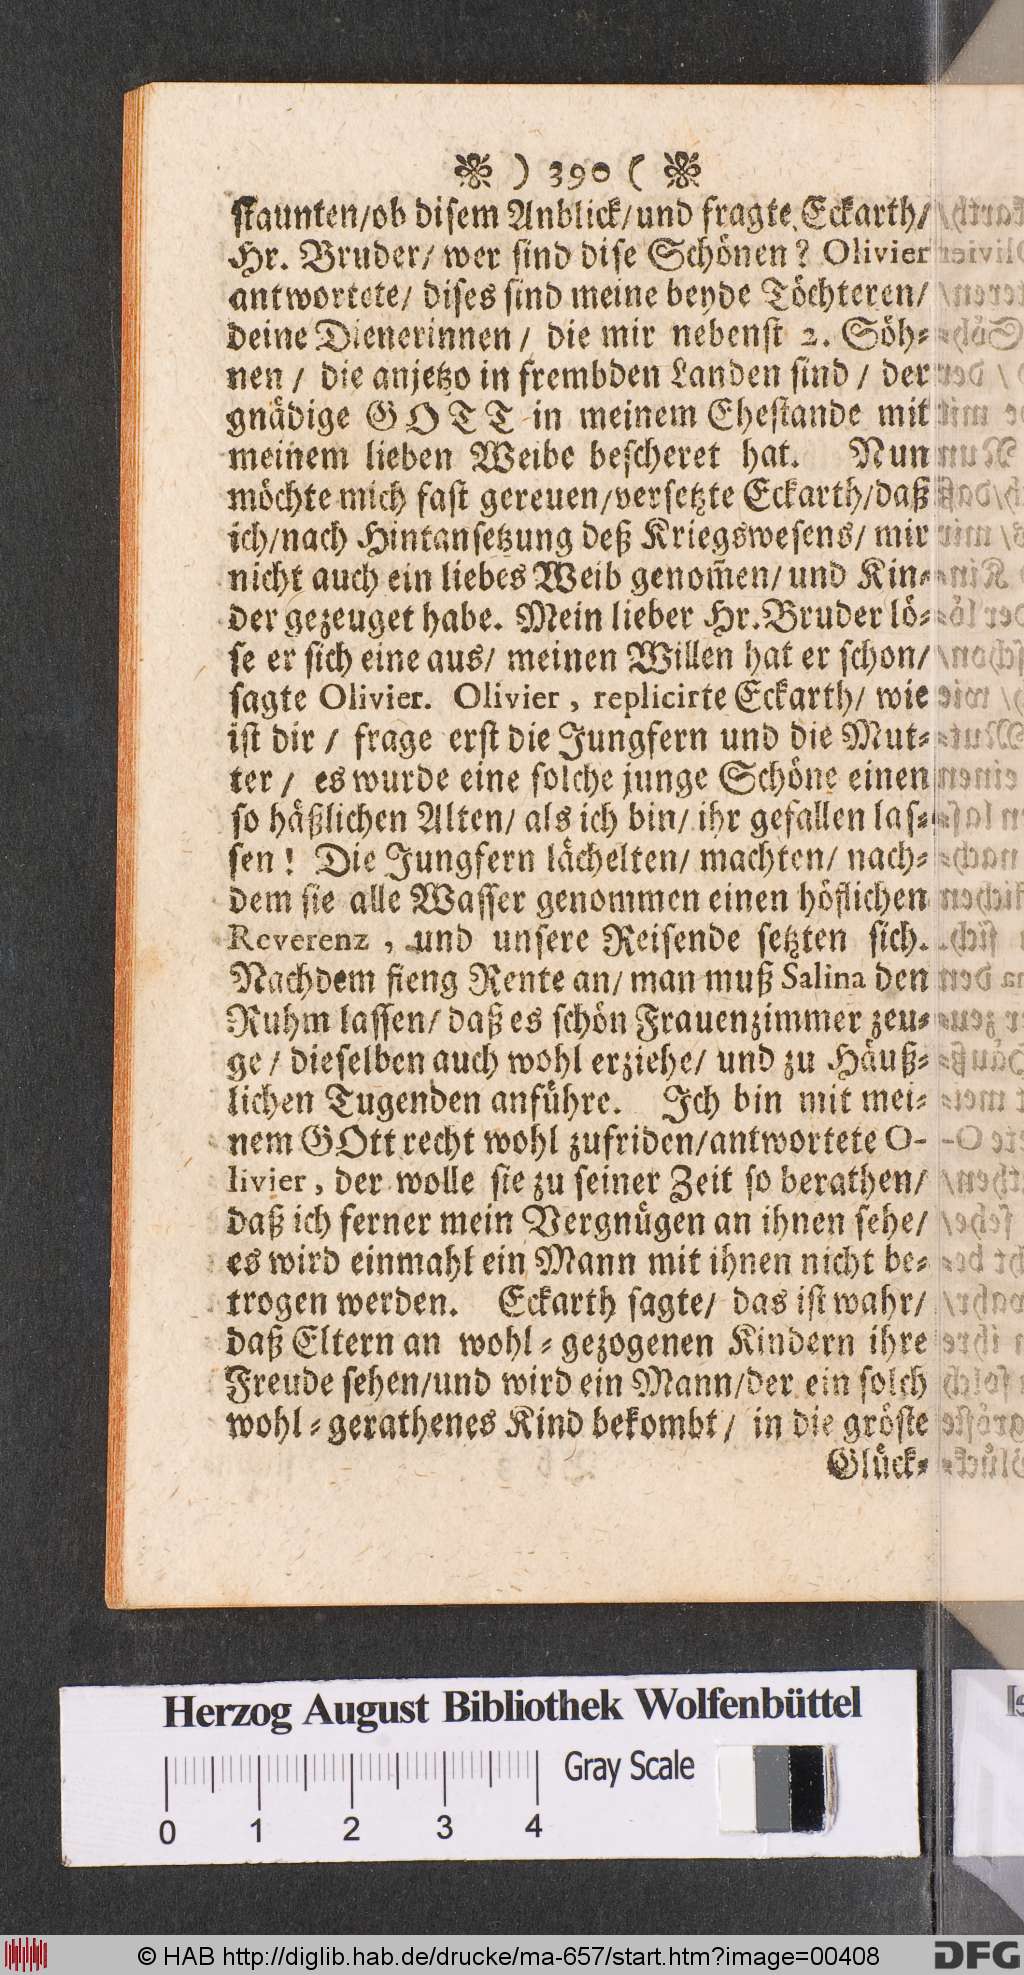 ) 390 (
staunten/ob disem Anblick/und fragte Eckarth/
Hr. Bruder/ wer sind dise Schönen? Olivier
antwortete/ dises sind meine beyde Töchteren/
deine Dienerinnen/ die mir nebenst 2. Söh-
nen/ die anjetzo in frembden Landen sind/ der
gnädige GOTT in meinem Ehestande mit
meinem lieben Weibe bescheret hat. Nun
möchte mich fast gereuen/versetzte Eckarth/daß
ich/nach Hintansetzung deß Kriegswesens/ mir
nicht auch ein liebes Weib genom̃en/ und Kin-
der gezeuget habe. Mein lieber Hr. Bruder lö-
se er sich eine aus/ meinen Willen hat er schon/
sagte Olivier. Olivier, replicirte Eckarth/ wie
ist dir/ frage erst die Jungfern und die Mut-
ter/ es wurde eine solche junge Schöne einen
so häßlichen Alten/ als ich bin/ ihr gefallen las-
sen! Die Jungfern lächelten/ machten/ nach-
dem sie alle Wasser genommen einen höflichen
Reverenz, und unsere Reisende setzten sich.
Nachdem fieng Rente an/ man muß Salina den
Ruhm lassen/ daß es schön Frauenzimmer zeu-
ge/ dieselben auch wohl erziehe/ und zu Häuß-
lichen Tugenden anführe. Ich bin mit mei-
nem GOtt recht wohl zufriden/antwortete O-
livier, der wolle sie zu seiner Zeit so berathen/
daß ich ferner mein Vergnügen an ihnen sehe/
es wird einmahl ein Mann mit ihnen nicht be-
trogen werden. Eckarth sagte/ das ist wahr/
daß Eltern an wohl-gezogenen Kindern ihre
Freude sehen/und wird ein Mann/der ein solch
wohl-gerathenes Kind bekombt/ in die gröste
Glück-
Herzog August Bibliothek Wolfenbüttel
Gray Scale
0 1 2 3 4
© HAB http://diglib.hab.de/drucke/ma-657/start.htm?image=00408
DFG